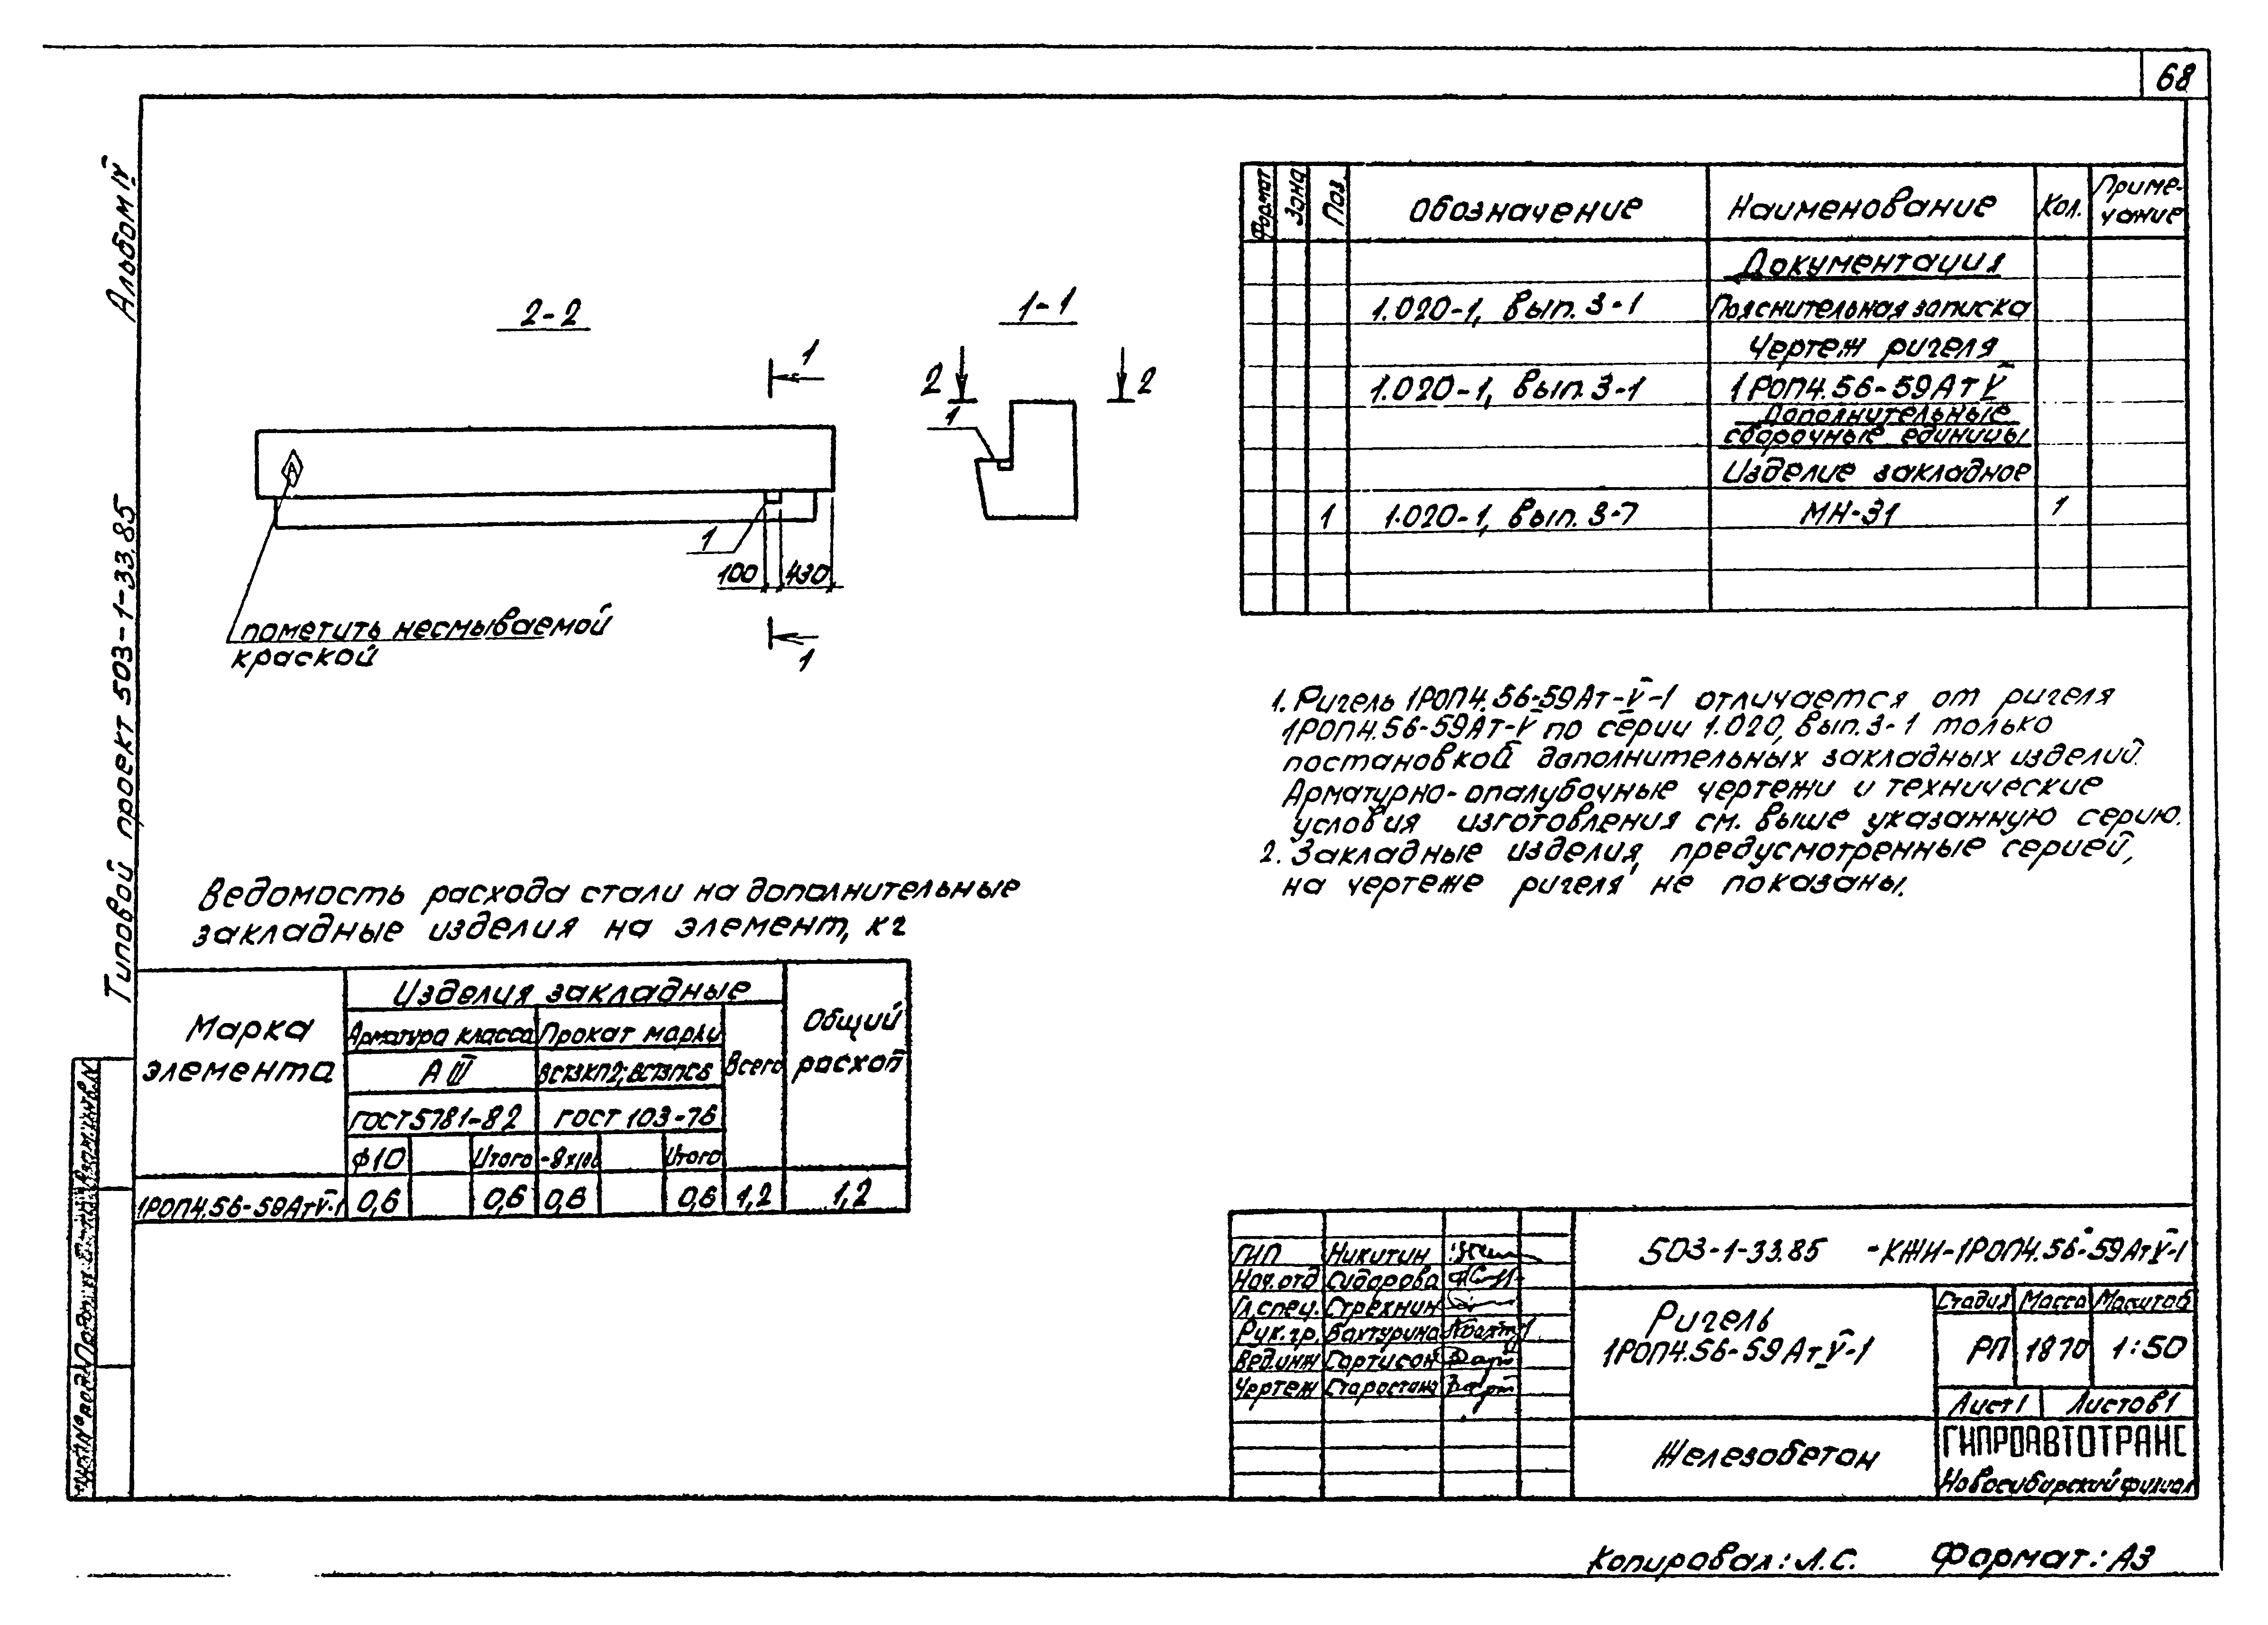 68
Альбом IV
Типовой проект 503-1-33.85
2-2
1-1
1
2
2
1
А
1
100
430
1
пометить несмываемой
краской
Формат
Зона
Поз.
Обозначение
Наименование
Кол.
Приме-
чание
Документация
1.020-1, вып. 3-1
Пояснительная записка
Чертеж ригеля
1.020-1, вып. 3-1
1РОП4.56-59АтV
Дополнительные
сборочные единицы
Изделие закладное
1
1.020-1, вып. 3-7
МН-31
1
1. Ригель 1РОП4.56-59Ат-V-1 отличается от ригеля
1РОП4.56-59Ат-V по серии 1.020, вып. 3-1 только
постановкой дополнительных закладных изделий.
Арматурно-опалубочные чертежи и технические
условия изготовления см. выше указанную серию.
2. Закладные изделия, предусмотренные серией,
на чертеже ригеля не показаны.
Ведомость расхода стали на дополнительные
закладные изделия на элемент, кг
Марка
элемента
Изделия закладные
Общий
расход
Арматура класса
Прокат марки
Всего
АIII
ВСт3КП2; ВСт3ПС6
ГОСТ 5781-82
ГОСТ 103-76
ф10
Итого
-8х100
Итого
1РОП4.56-59АтV-1
0,6
0,6
0,6
0,6
1,2
1,2
ГИП
Никитин
Нач.отд
Сидорова
Гл.спец.
Стрехнин
Рук.гр.
Бахтурина
Вед.инж
Гартисон
Чертеж
503-1-33.85 -КЖИ-1РОП4.56-59АтV-1
Ригель
1РОП4.56-59АтV-1
Стадия
Масса
Масштаб
РП
1870
1:50
Лист 1
Листов 1
Железобетон
ГИПРОАВТОТРАНС
Новосибирский филиал
Копировал: Л.С.
Формат: А3